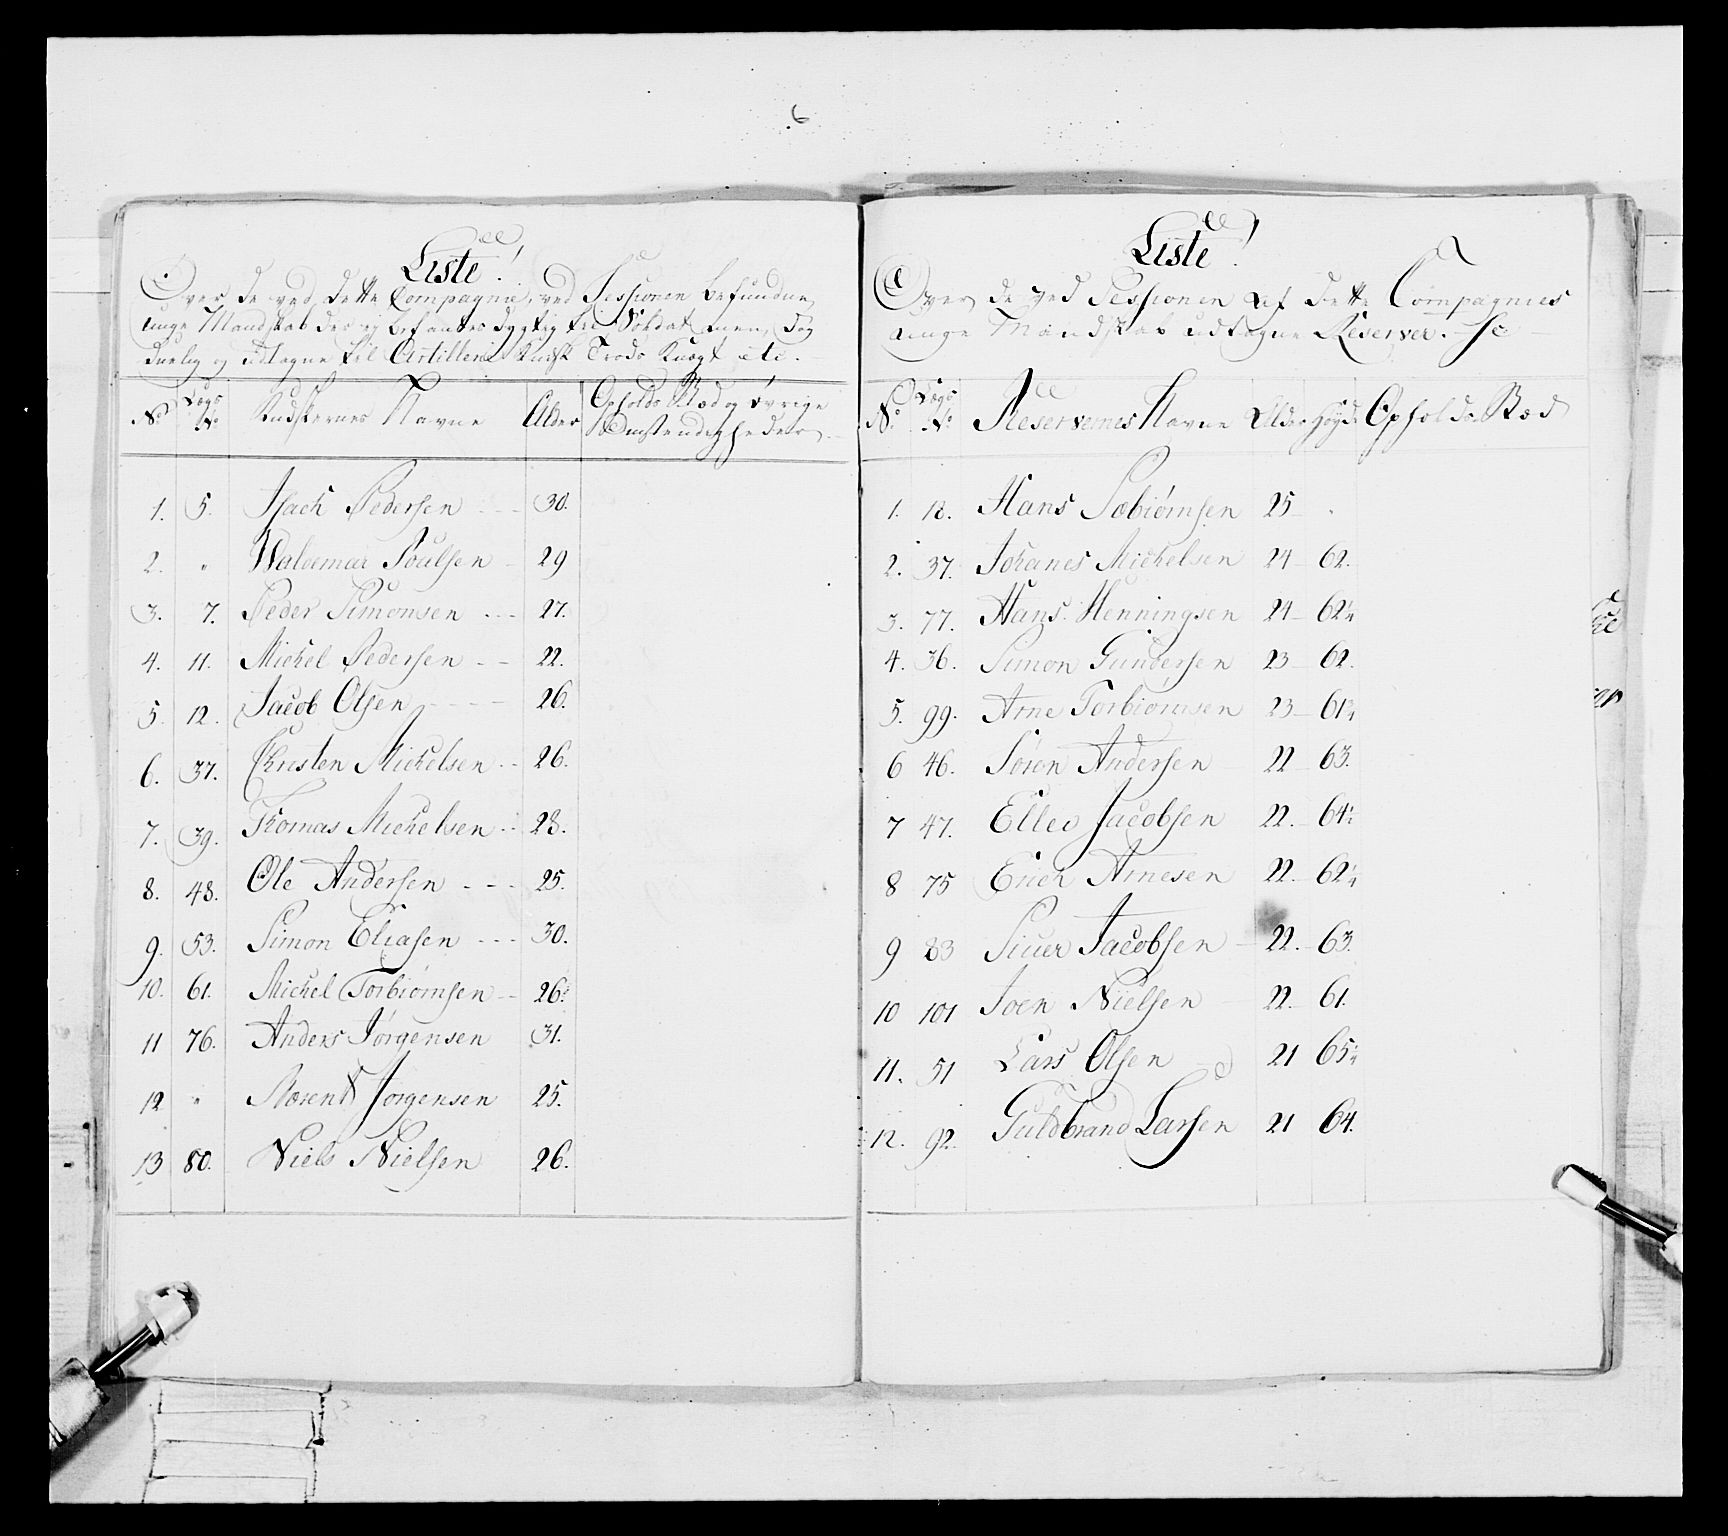 6
Liste!
Over de ved dette Compagnie, ved Sessionen befundne
unge Mandskab der ej befantes dygtig til Soldat men, dog
duelig og udtagne til Artillerie Kudsk Trods Knægt etc.
No Lægs No Kudskernes Navne Alder Opholds Stæd og øvrige Omstændigheder
1. 5. Isach Pedersen 30.
2. " Waldemar Poulsen 29
3. 7. Peder Simonsen 27.
4. 11. Michel Pedersen 22.
5. 12. Jacob Olsen 26.
6. 37. Christen Michelsen 26.
7. 39. Thomas Michelsen 28.
8. 48. Ole Andersen 25.
9. 53. Simon Eliasen 30.
10. 61. Michel Torbiørnsen 26.
11 76. Anders Jørgensen 31.
12 " Bærent Jørgensen 25.
13 80. Niels Nielsen 26.
Liste!
Over de ved Sessionen af dette Compagnies
unge Mandskab udtagne Reserver.
No Lægs No Reservernes Navne Alder Høyde Opholds Stæd
1. 12. Hans Sæbiørnsen 25
2. 37. Johanes Michelsen 24 62.
3. 77. Hans Henningsen 24 62¼
4. 36. Simon Gundersen 23 62.
5. 99. Arne Torbiørnsen 23 61¾
6 46. Søren Andersen 22 63.
7 47. Ellev Jacobsen 22. 64½
8 75 Erich Arnesen 22 62¼
9 83 Siver Jacobsen 22. 63.
10 101 Joen Nielsen 22. 61.
11. 51 Lars Olsen 21 65¼
12. 92. Guldbrand Larsen 21 64.